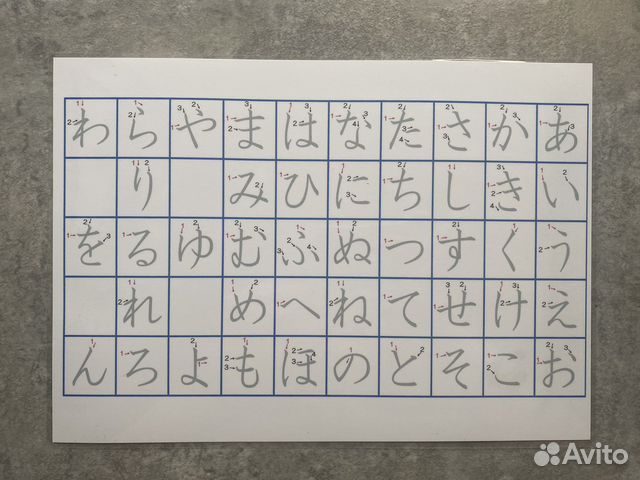 わ ら や ま は な た さ か あ
り み ひ に ち し き い
を る ゆ む ふ ぬ つ す く う
れ め へ ね て せ け え
ん ろ よ も ほ の と そ こ お
Avito